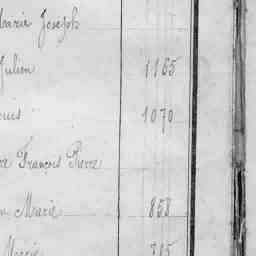 Marie Joseph
Julien 1165
ouis 1070
re François Pierre
n Marie 858
Marie 715